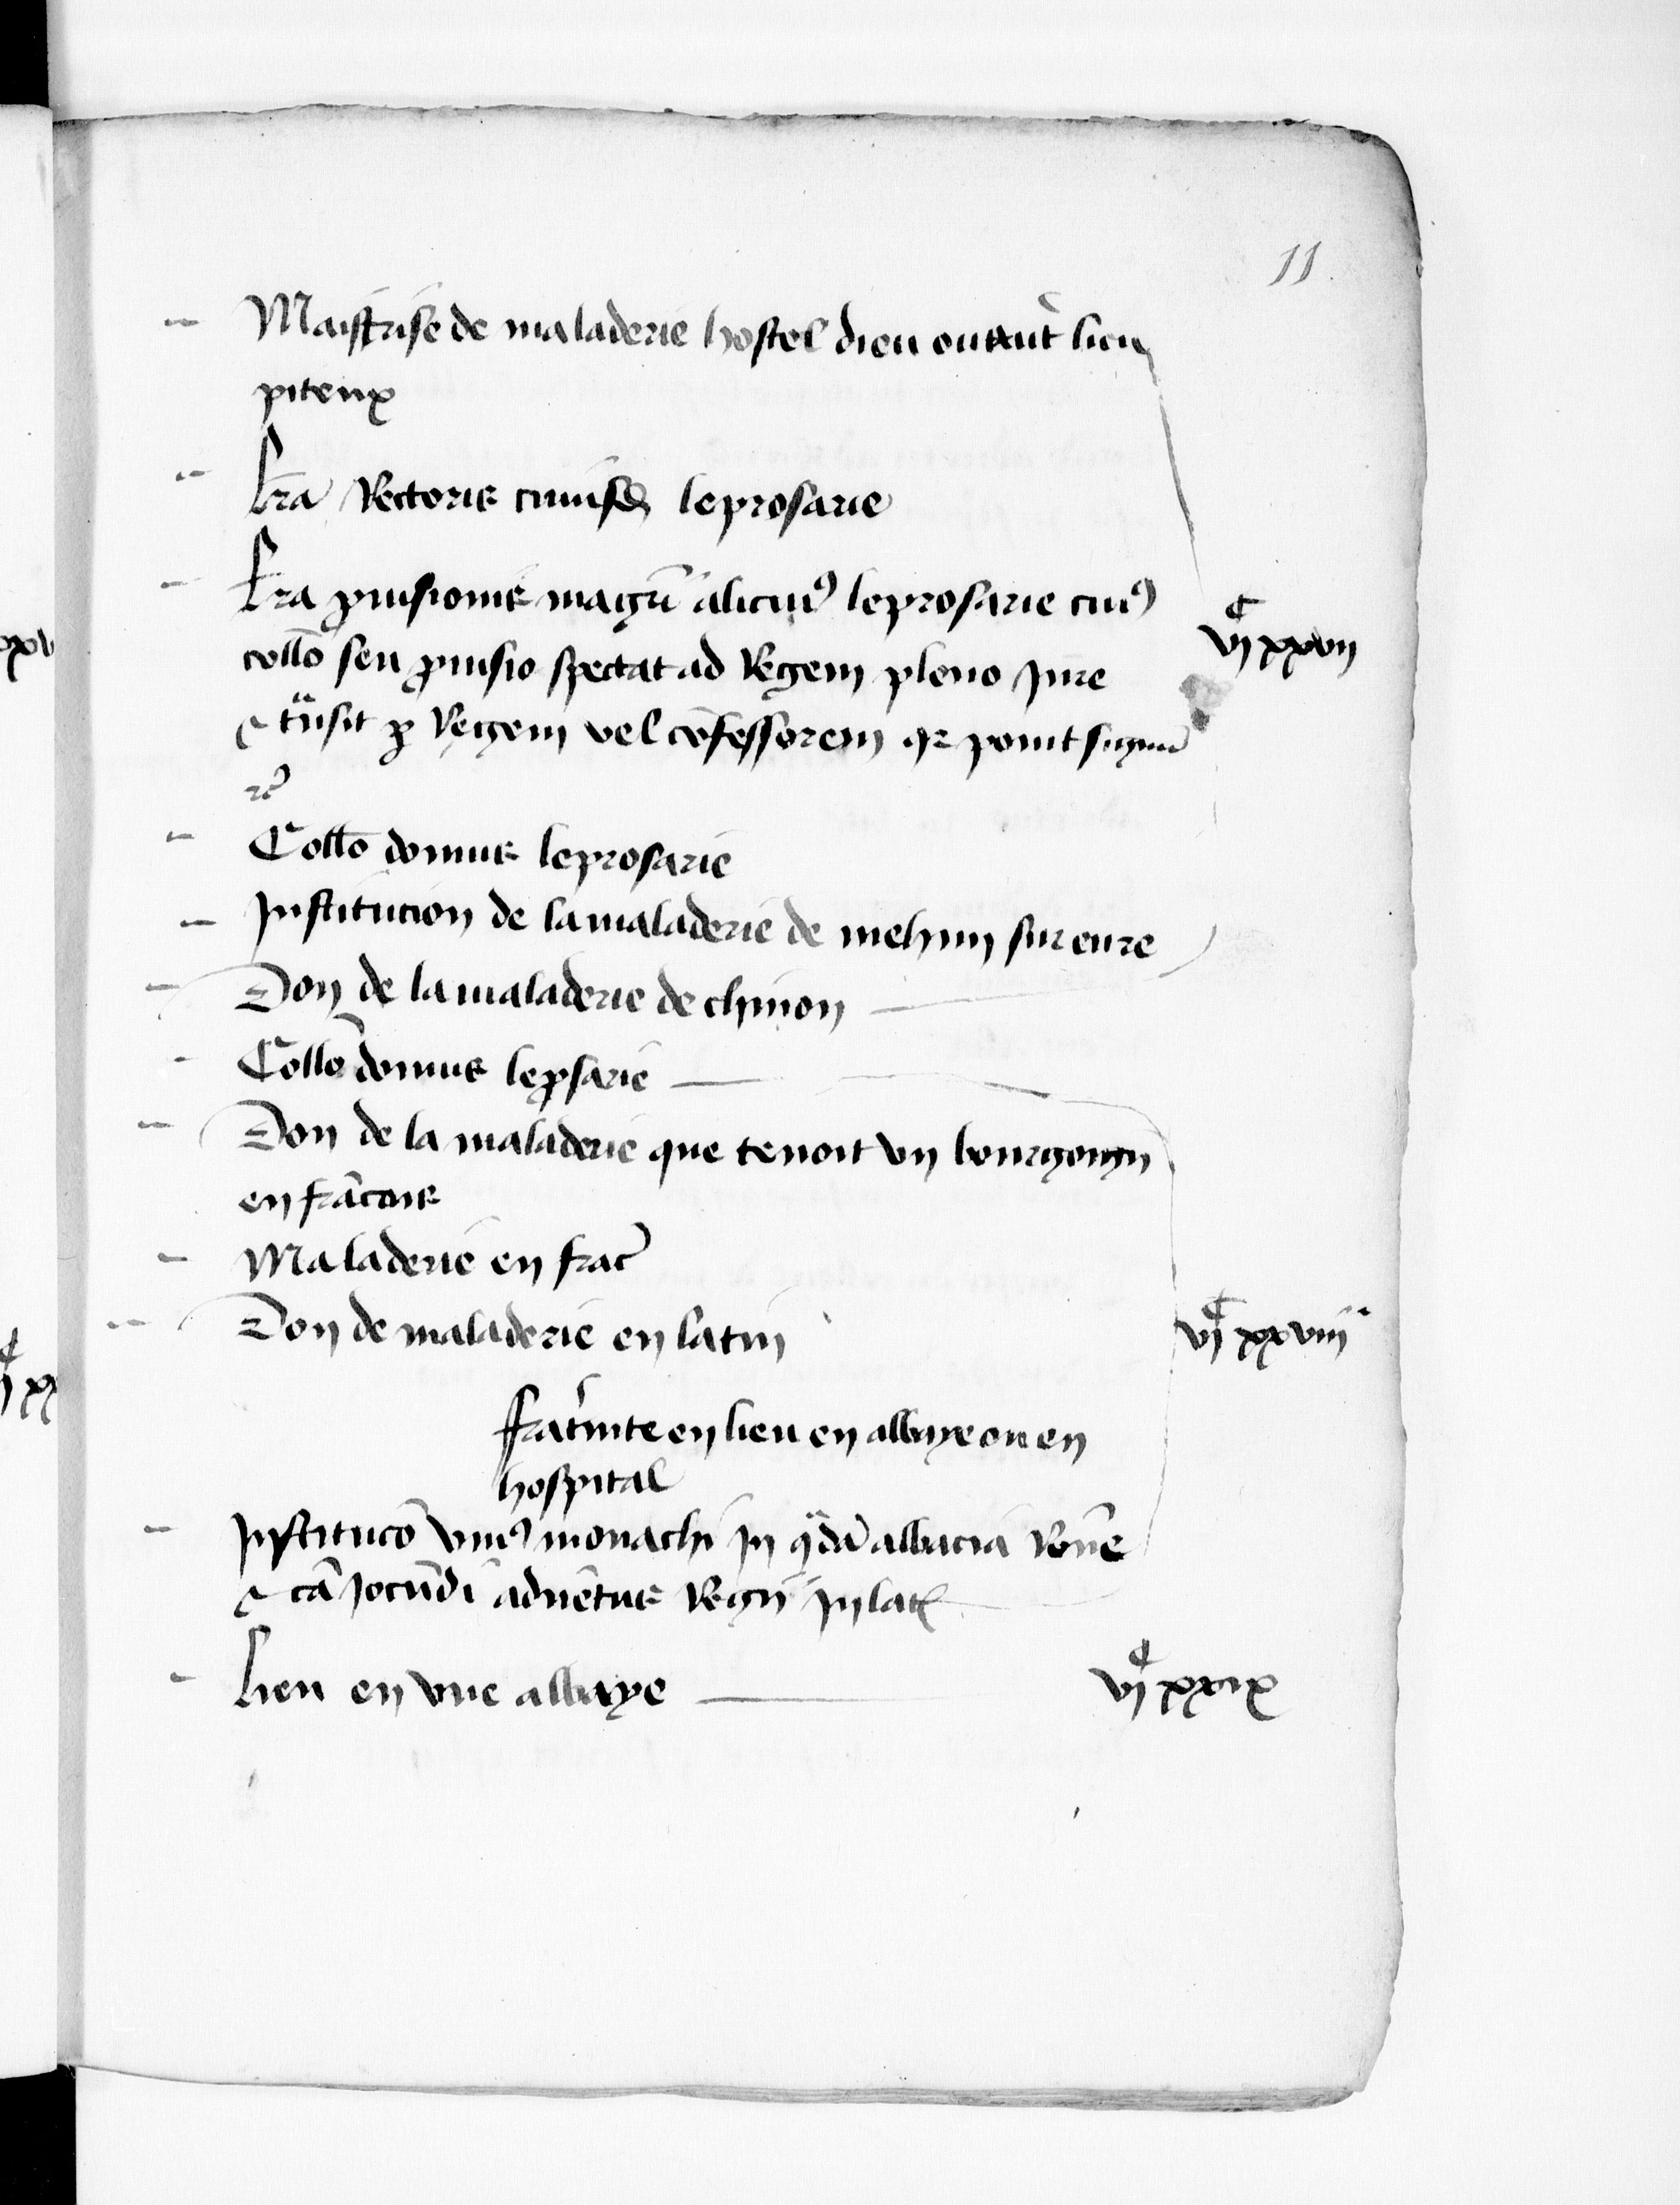 11
Maistrise de maladerie hostel dieu ou aut' lieu
piteux
Lr̃a Rectoris cuiusd' leprosarie
Lr̃a prouisionis mag̃ri alicui9 leprosarie cui9
coll̃o seu prouisio spectat ad Regem pleno jure
vj͑ xxvij
& t̃nsit p Regem vel cõfessorem
Coll̃o domus leprosarie
Institucion de la maladerie de mehun sur eure
Don de la maladerie de chinon
Coll̃o domus lep̃sarie
Don de la maladerie que tenoit vn bourgougn
en francois
Maladerie en franc'
Don de maladerie en latin
vj͑ xxviij
Frat̃nite en lieu en abbaye ou en
hospital
Institucõ vni9 monachi in q̃dã abbacia Rõne
& cã jocũdi aduẽtus Regij in lat'
Lieu en vne abbaye
vj͑ xxix